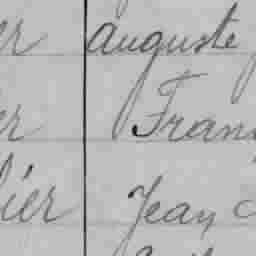 er auguste
er Fran
lier Jean